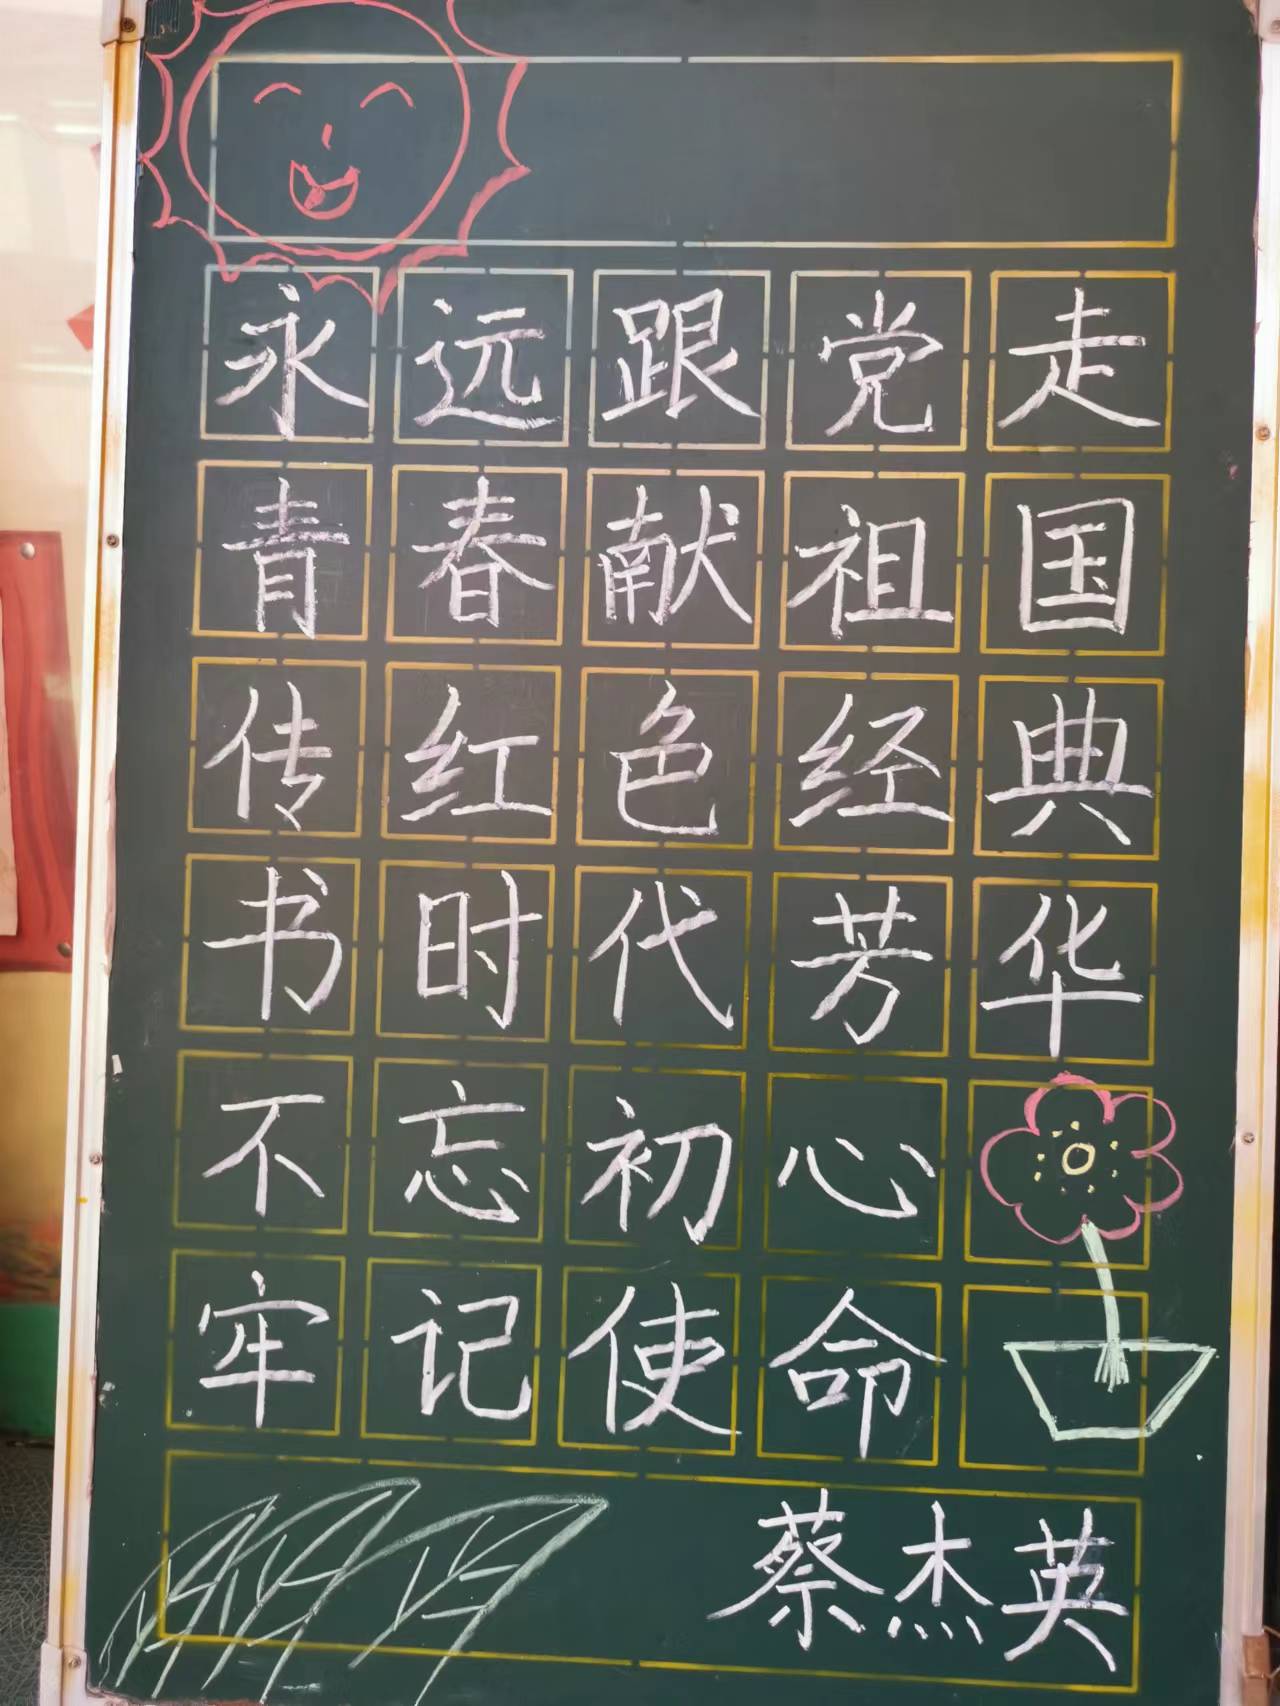 永远跟党走
青春献祖国
传红色经典
书时代芳华
不忘初心
牢记使命
蔡杰英